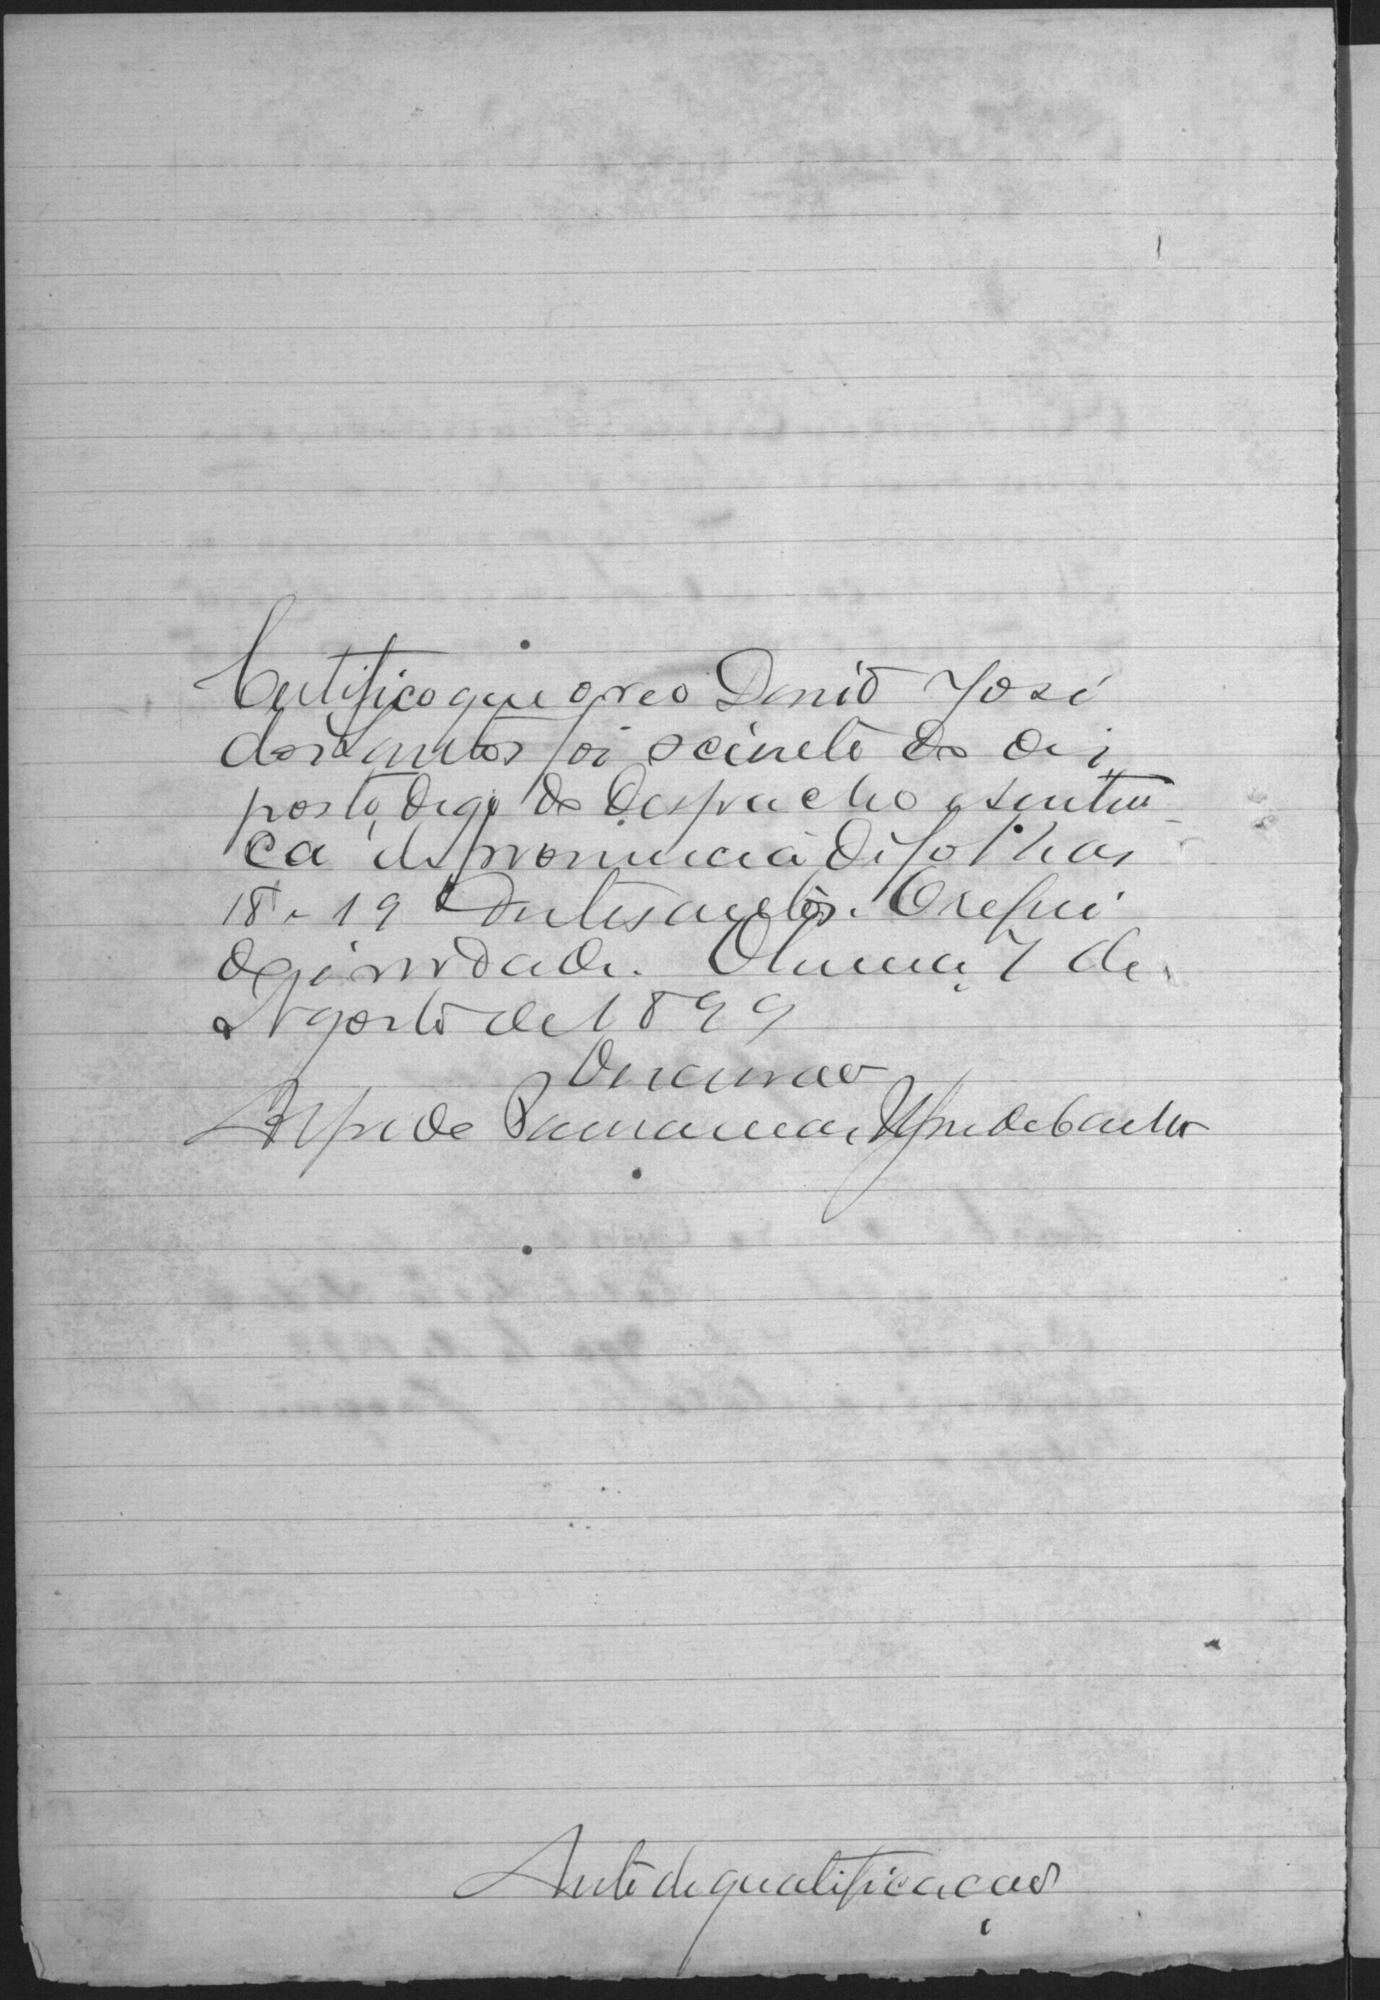 Certifico que o reo David José
dos Santos foi sciente do de
posto, digo do despacho e senten
ca de pronuncia de folhas
18 a 19 destes autos. O refe
do é verdade. 7 de
Agosto de 1899
O escrivão
Alfredo
Auto de qualificação